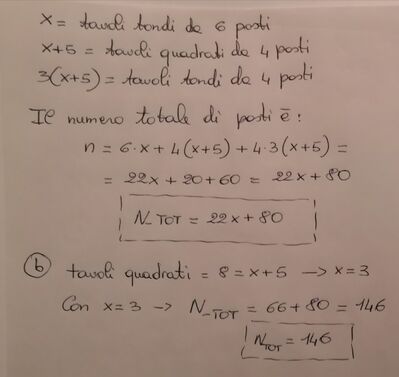 x = tavoli tondi da 6 posti
x+5 = tavoli quadrati da 4 posti
3(x+5) = tavoli tondi da 4 posti
Il numero totale di posti ē:
n = 6·x + 4(x+5) + 4·3(x+5) =
= 22x + 20 + 60 = 22x + 80
N_TOT = 22x + 80
(b) tavoli quadrati = 8 = x+5 —> x=3
Con x=3 —> N_TOT = 66+80 = 146
N_TOT = 146